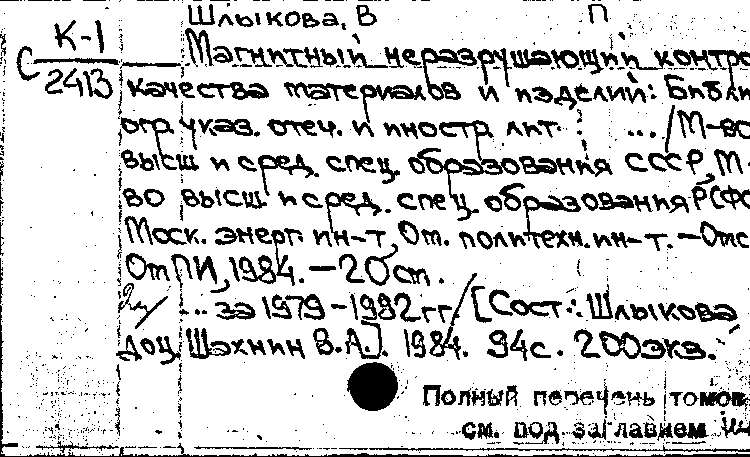 Шлыкова, В П
С К-1
2413
Магнитный неразрушающий контро
качества материалов и изделий: Библи
огр. указ. отеч. и иностр. лит. : .../М-во
высш и сред. спец. образования СССР, М-
во высш и сред. спец. образования РСФС
Моск. энерг. ин-т, Ом. политехн. ин-т. — Омс
ОмПИ, 1984. — 20 см.
... за 1979-1982 гг. / [Сост.: Шлыкова
доц. Шахнин В.А.]. 1984. 94 с. 200 экз.
Полный перечень томов
см. под заглавием